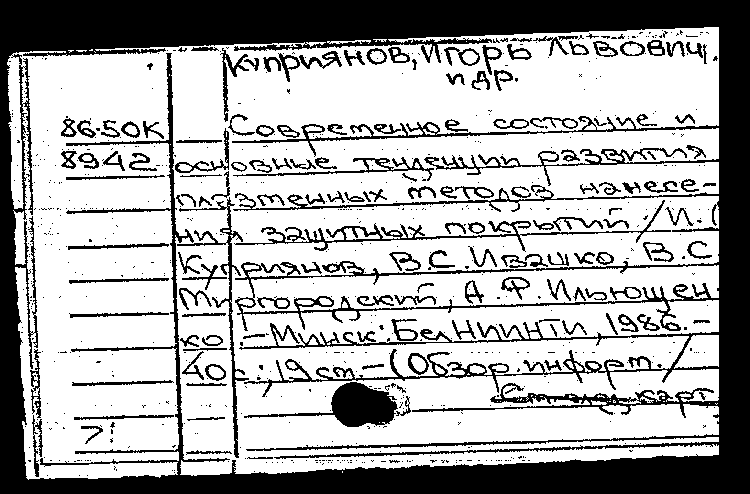 Куприянов, Игорь Львович,
и др.
86-50К Современное состояние и
8942 основные тенденции развития
плазменных методов нанесе-
ния защитных покрытий / И.
Куприянов, В.С. Ивашко, В.С
Миргородский, А.Ф. Ильющен-
ко .– Минск: БелНИИНТИ, 1986.–
40с.; 19 см. – (Обзор. информ. /
карт